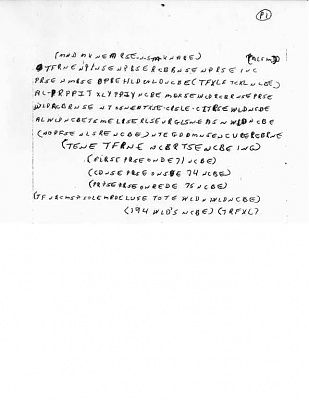 (P1)
(MND MKNEARSE-N-S-M-KNARE) (ACSM)
TFRNE NPINSE NPBSE RCBRNSE NPRSE INC
PRSE NMRSE OPREHLDWLDNCBE (TFXLF TCXL NCBE)
AL-PRPPIT XLYPPIY NCBE MGKSE WLDRCBRNSE PRSE
WLDRCBRNSE NTSSNENTXSE-CRSLE-CITRSE WLDNCBE
ALWLDNCBETSMELRSERLSEURGLSNEASNWLDNCBE
(NOPFSE NLSRE NCBE) NTEGDDMNSENCURERCBRNE
(TENE TFRNE NCBRTSE NCBE INC)
(FLRSE PRSE ONDE 71 NCBE)
(CDNSE PRSE ONSDE 74 NCBE)
(PRTSE PRSE ONREDE 75 NCBE)
(TFNRCMSPSOLE MRDE LUSE TOTE WLDN WLDNCBE)
(194 WLD'S NCBE) (TRFXL)